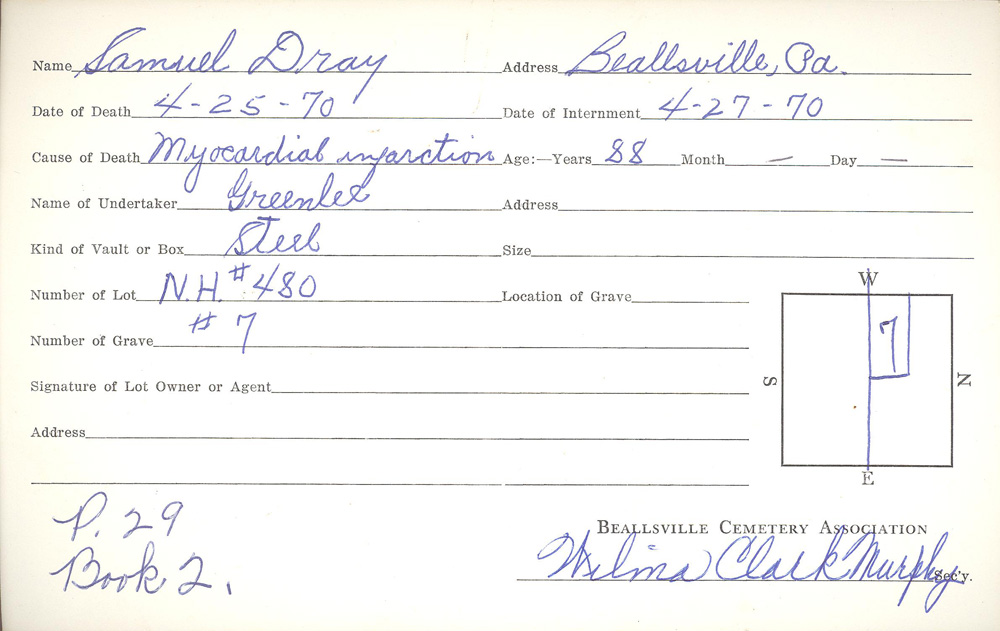 Name Samuel Dray Address Beallsville, Pa.
Date of Death 4-25-70 Date of Internment 4-27-70
Cause of Death Myocardial infarction Age:—Years 88 Month — Day —
Name of Undertaker Greenlee Address
Kind of Vault or Box Steel Size
Number of Lot N.H. # 480 Location of Grave
Number of Grave # 7
Signature of Lot Owner or Agent
Address
W
7
S N
E
P. 29
Book 2.
BEALLSVILLE CEMETERY ASSOCIATION
Wilma Clark Murphy Sec'y.